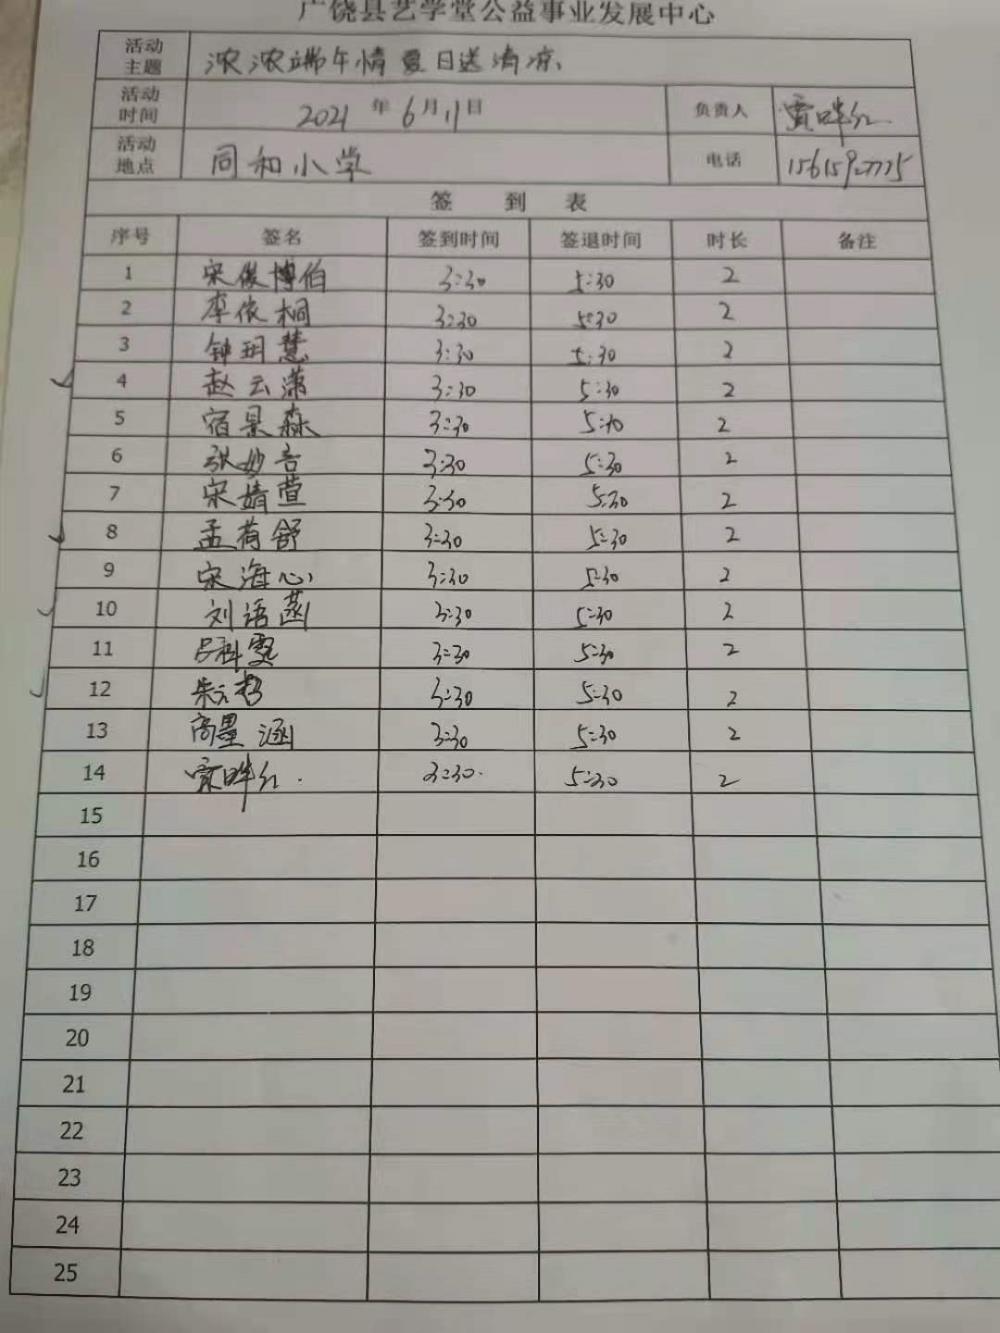 广饶县艺学堂公益事业发展中心
活动主题 浓浓端午情 夏日送清凉
活动时间 2021 年 6 月 11 日 负责人
活动地点 同和小学 电话 15615927775
签 到 表
序号 签名 签到时间 签退时间 时长 备注
1 宋俊博伯 3:30 5:30 2
2 李依桐 3:30 5:30 2
3 钟玥慧 3:30 5:30 2
4 赵云潇 3:30 5:30 2
5 宿景森 3:30 5:30 2
6 张妙言 3:30 5:30 2
7 宋婧萱 3:30 5:30 2
8 孟荷舒 3:30 5:30 2
9 宋海心 3:30 5:30 2
10 刘语菡 3:30 5:30 2
11 吕科雯 3:30 5:30 2
12 3:30 5:30 2
13 高墨涵 3:30 5:30 2
14 3:30 5:30 2
15
16
17
18
19
20
21
22
23
24
25